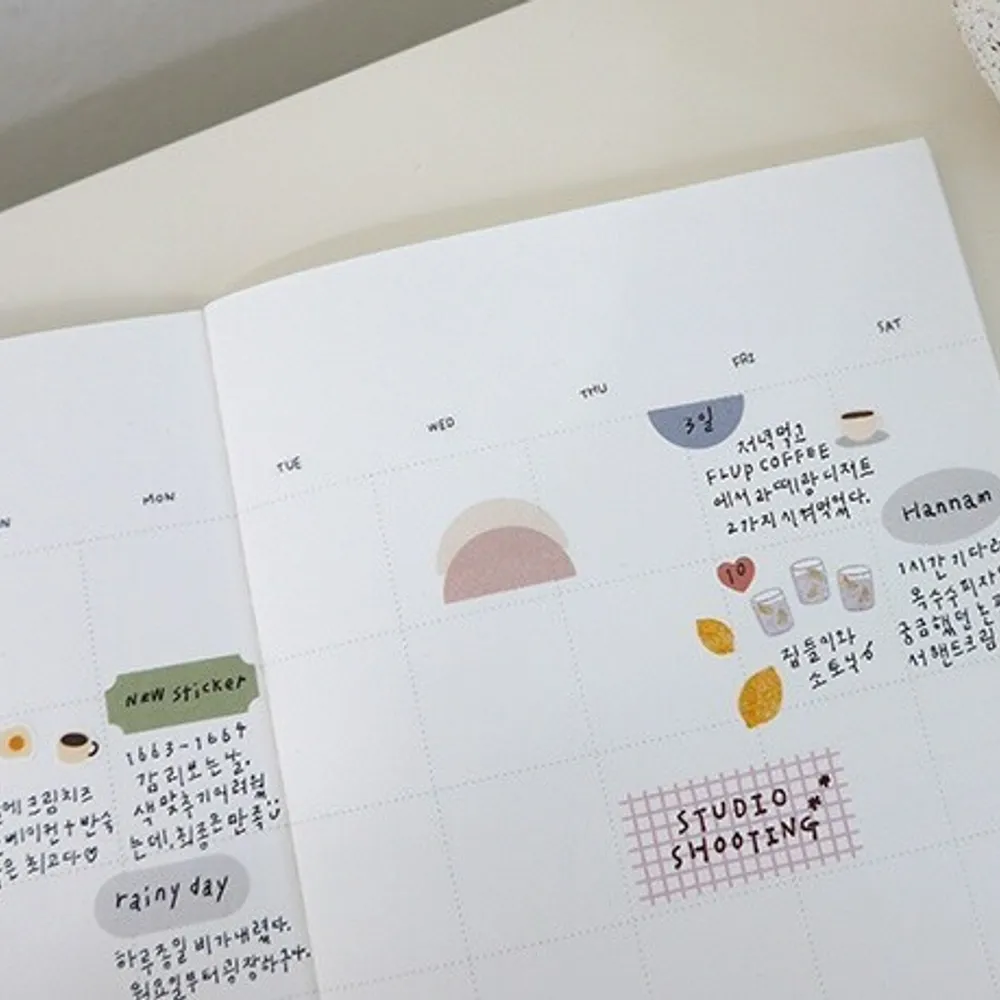 MON
TUE
WED
THU
FRI
SAT
3일
저녁먹고
FLUP COFFEE
에서 라떼랑 디저트
2가지 시켜먹었다.
Hannam
1시간 기다려
옥수수피자
궁금했던 논
서 핸드크림
10
집들이와
소토닉
NEW Sticker
1663-1664
감리보는날.
색 맞추기 어려웠
는데, 최종은 만족
크림치즈
베이컨+반숙
은 최고다
STUDIO
SHOOTING
rainy day
하루종일 비가 내렸다.
월요일부터 굉장하구나.